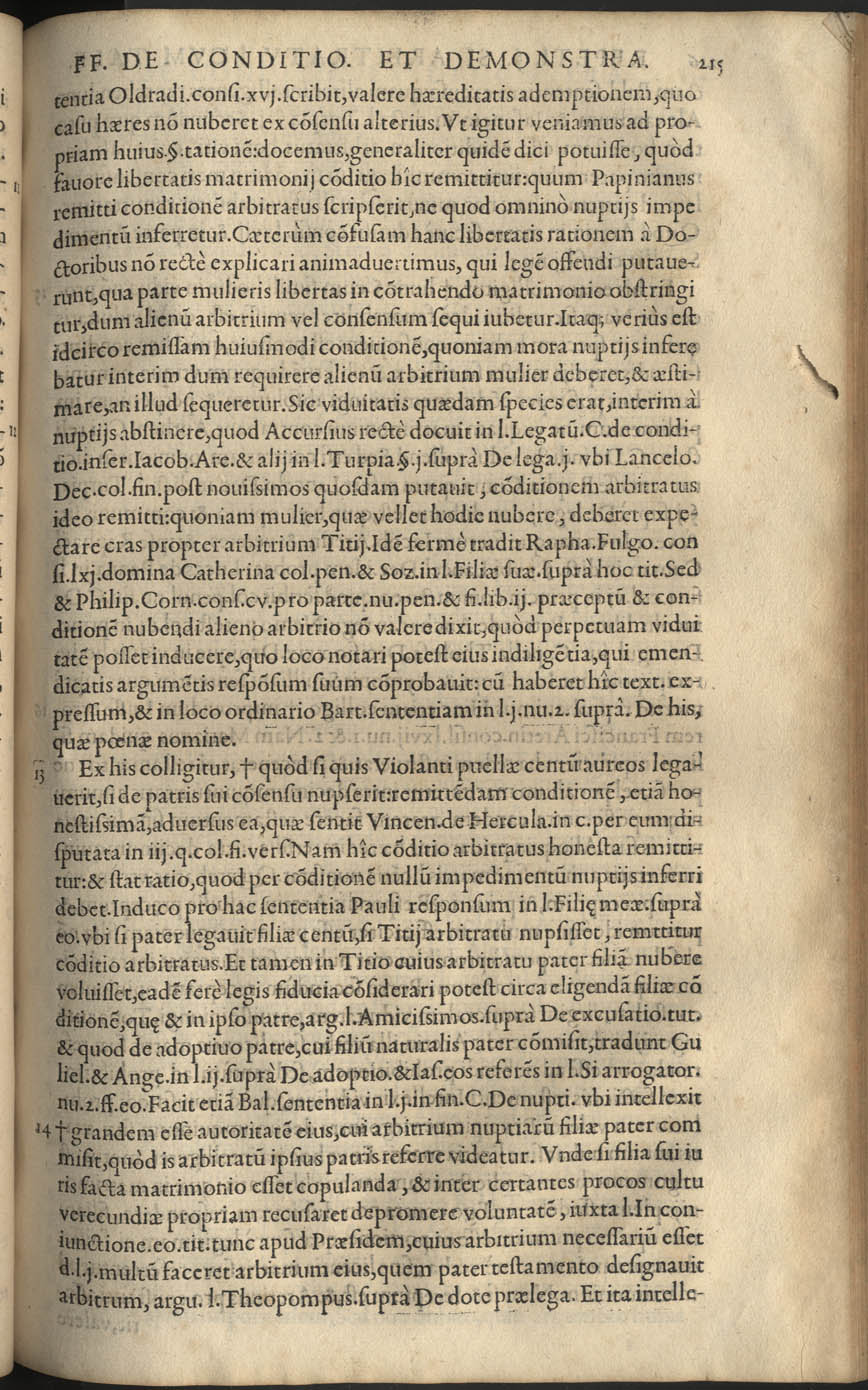 FF. DE CONDITIO. ET DEMONSTRA. 215
tentia Oldradi.conſi.xvj.ſcribit,valere hæreditatis ademptionem,quo
caſu hæres nõ nuberet ex cõſenſu alterius.Vt igitur veniamus ad pro-
priam huius.§.tationẽ:docemus,generaliter quidẽ dici potuiſſe, quòd
fauore libertatis matrimonij cõditio hîc remittitur:quum Papinianus
remitti conditionẽ arbitratus ſcripſerit,ne quod omninò nuptijs impe
dimentũ inferretur.Cæterùm cõfuſam hanc libertatis rationem à Do-
ctoribus nõ rectè explicari animaduertimus, qui legẽ offendi putaue-
runt,qua parte mulieris libertas in cõtrahendo matrimonio obſtringi
tur,dum alienũ arbitrium vel conſenſum ſequi iubetur.Itaq; veriùs eſt
idcirco remiſſam huiuſmodi conditionẽ,quoniam mora nuptijs infere
batur interim dum requirere alienũ arbitrium mulier deberet,& æſti-
mare,an illud ſequeretur.Sic viduitatis quædam ſpecies erat,interim à
nuptijs abſtinere,quod Accurſius rectè docuit in l.Legatũ.C.de condi-
tio.inſer.Iacob.Are.& alij in l.Turpia.§.j.ſuprà De lega.j. vbi Lancelo.
Dec.col.fin.poſt nouiſsimos quoſdam putauit, cõditionem arbitratus
ideo remitti:quoniam mulier,quæ vellet hodie nubere, deberet expe-
ctare cras propter arbitrium Titij.Idẽ fermè tradit Rapha.Fulgo. con
ſi.lxj.domina Catherina col.pen.& Soz.in l.Filiæ ſuæ.ſuprà hoc tit.Sed
& Philip.Corn.conſ.cv.pro parte.nu.pen.& fi.lib.ij. præceptũ & con-
ditionẽ nubendi alieno arbitrio nõ valere dixit,quòd perpetuam vidui
tatẽ poſſet inducere,quo loco notari poteſt eius indiligẽtia,qui emen-
dicatis argumẽtis reſpõſum ſuùm cõprobauit: cũ haberet hîc text. ex-
preſſum,& in loco ordinario Bart.ſententiam in l.j.nu.2. ſuprà. De his,
quæ pœnæ nomine.
13 Ex his colligitur, † quòd ſi quis Violanti puellæ centũ aureos lega-
uerit,ſi de patris ſui cõſenſu nupſerit:remittẽdam conditionẽ, etiã ho-
neſtiſsimã,aduerſus ea,quæ ſentit Vincen.de Hercula.in c.per eum di-
ſputata in iij.q.col.fi.verſ.Nam hîc cõditio arbitratus honeſta remitti-
tur:& ſtat ratio,quod per cõditionẽ nullũ impedimentũ nuptijs inferri
debet.Induco pro hac ſententia Pauli reſponſum in l.Filię meæ.ſuprà
eo.vbi ſi pater legauit filiæ centũ,ſi Titij arbitratu nupſiſſet, remttitur
cõditio arbitratus.Et tamen in Titio cuius arbitratu pater filiã nubere
voluiſſet,eadẽ ferè legis fiducia cõſiderari poteſt circa eligendã filiæ cõ
ditionẽ,quę & in ipſo patre,arg.l.Amiciſsimos.ſuprà De excuſatio.tut.
& quod de adoptiuo patre,cui filiũ naturalis pater cõmiſit,tradunt Gu
liel.& Ange.in l.ij.ſuprà De adoptio.&Iaſ.eos referẽs in l.Si arrogator.
nu.2.ff.eo.Facit etiã Bal.ſententia in l.j.in fin.C.De nupti. vbi intellexit
14 †grandem eſſe autoritatẽ eius,cui arbitrium nuptiarũ filiæ pater com
miſit,quòd is arbitratũ ipſius patris referre videatur. Vnde ſi filia ſui iu
ris facta matrimonio eſſet copulanda, & inter certantes procos cultu
verecundiæ propriam recuſaret depromere voluntatẽ, iuxta l.In con-
iunctione.eo.tit.tunc apud Præſidem,cuius arbitrium neceſſariũ eſſet
d.l.j.multũ faceret arbitrium eius,quem pater teſtamento deſignauit
arbitrum, argu. l.Theopompus.ſuprà De dote prælega. Et ita intelle-